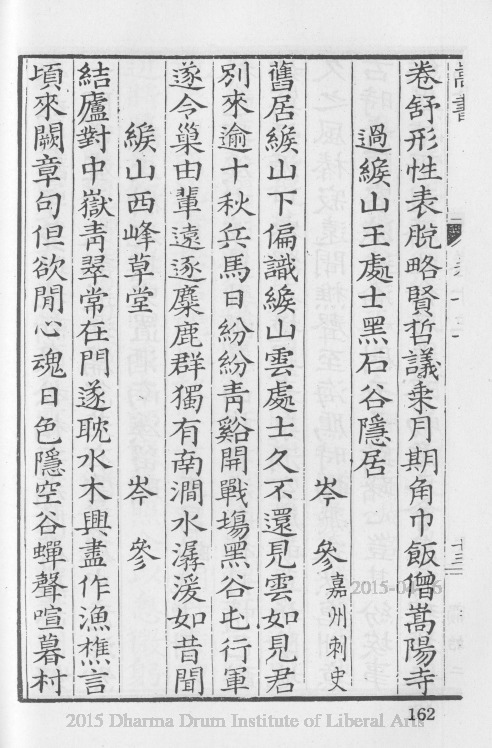 卷舒形性表脫略賢哲議乗月期角巾飯僧嵩陽寺
過緱山王處士黑石谷隱居
岑參嘉州刺史
舊居緱山下偏識緱山雲處士久不還見雲如見君
別來逾十秋兵馬日紛紛青谿開戰場黑谷屯行軍
遂令巢由輩遠逐麋鹿群獨有南澗水潺湲如昔聞
緱山西峰草堂 岑參
結廬對中嶽青翠常在門遂耽水木興盡作漁樵言
頃來闕章句但欲閒心魂日色隱空谷蟬聲喧暮村
162
2015 Dharma Drum Institute of Liberal Arts